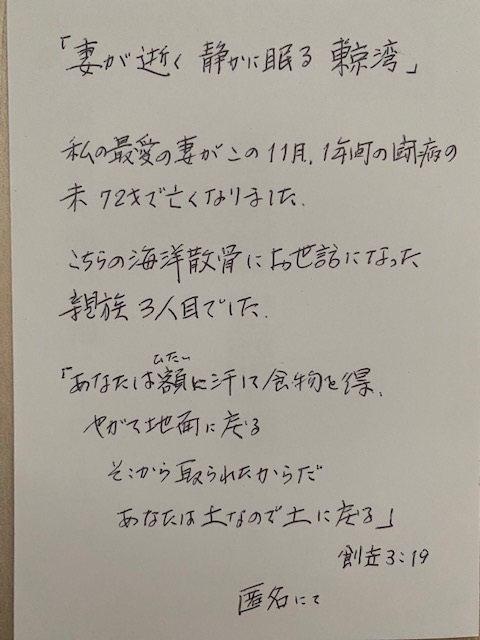 「妻が逝く 静かに眠る 東京湾」
私の最愛の妻がこの11月、1年間の闘病の
末 72才で亡くなりました。
こちらの海洋散骨にお世話になった
親族 3人目でした。
ひたい
「あなたは額に汗して食物を得、
やがて地面に戻る
そこから取られたからだ
あなたは土なので土に戻る」
創世3:19
匿名にて